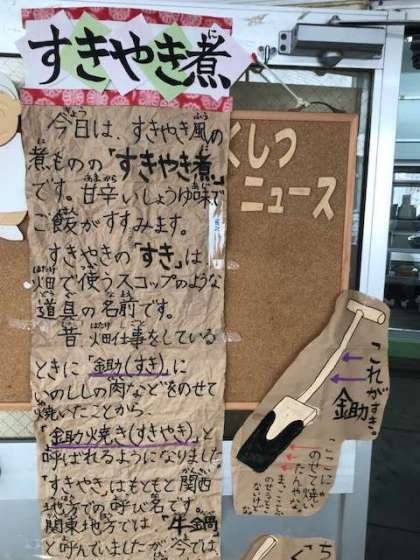 すきやき煮
今日は、すきやき風の
煮ものの「すきやき煮」
です。甘辛いしょうゆ味で
ご飯がすすみます。
すきやきの「すき」は、
畑で使うスコップのような
道具の名前です。
昔、畑仕事をしている
ときに「鋤(すき)に
いのししの肉などをのせて
焼いたことから、
「鋤焼き(すきやき)」と
呼ばれるようになりました
「すきやき」はもともと関西
地方での呼び名です。
関東地方では「牛鍋」
と呼んでいましたが、今では
くしつ
ニュース
これがすき。
鋤
「ここに
のせて焼い
たんやな。